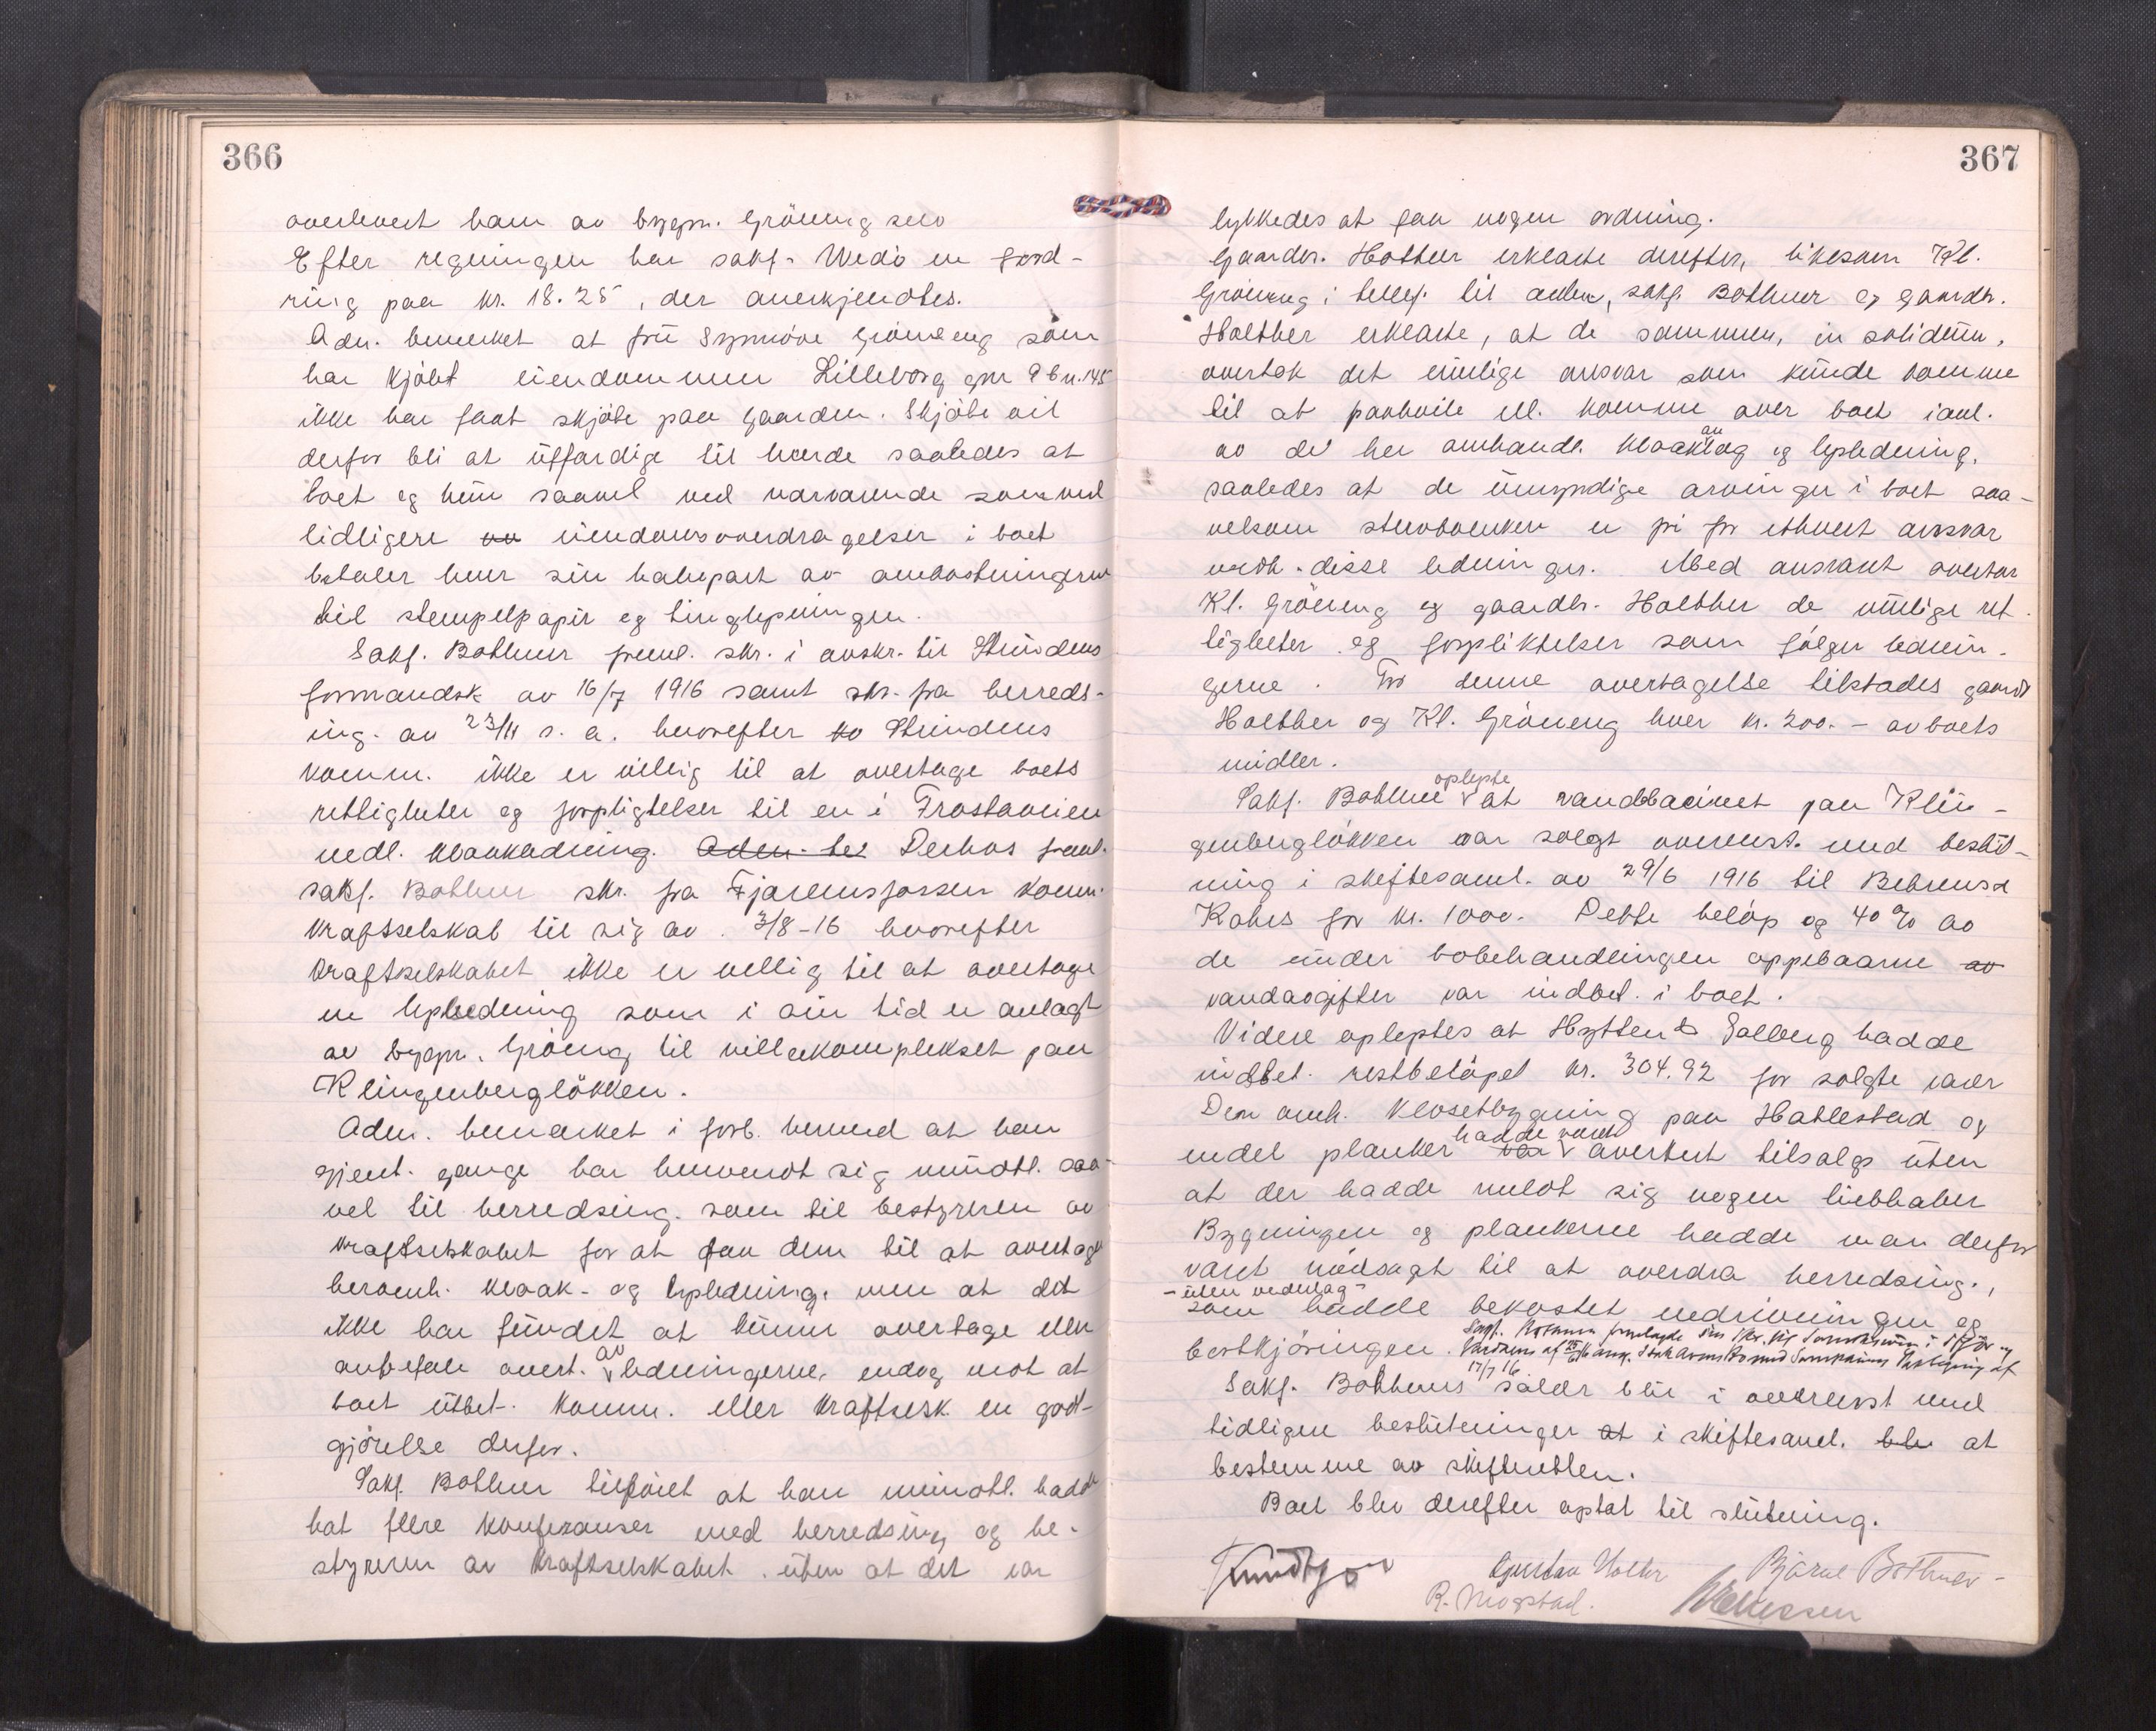 366
overlevert ham av bygm. Gröneng selv
Efter regningen har sakf. Wedö en ford-
ring paa kr. 18.25, der anerkjendtes.
Adm. bemerket at frü Synnöve Gröneng som
har kjöbt eiendommen Lilleborg gnr 9 bn. 145
ikke har faat skjöte paa gaarden. Skjöte vil
derfor bli at ütfardige til hende saaledes at
boet og hün saavel ved narvarende som ved
tidligere eiendomsoverdragelser i boet
betaler hver sin halvpart av omkostningerne
til stempelpapir og tinglysningen.
Sakf. Bothner freml. skr. i avskr. til Strindens
formandsk av 16/7 1916 samt skr. fra herreds-
ing. av 23/11 s. a. hvorefter Strindens
komm. ikke er villig til at overtage boets
rettigheter og forpligtelser til en i Frostaveien
nedl. kloakledning. Derhos freml.
sakf. Bothner skr. fra Fjæremsfossen komm.
kraftselskab til sig av 3/8-16 hvorefter
kraftselskabet ikke er villig til at overtage
en lysledning som i sin tid er anlagt
av bygm. Gröneng til villakomplekset paa
Klingenberglökken.
Adm. bemerket i forb. hermed at han
gjent. gange har henvendt sig mündtl. saa-
vel til herredsing. som til bestyreren av
kraftselskabet for at faa dem til at overtage
heromh. kloak- og lysledning, men at det
ikke har fündet at künne overtage eller
anbefale overt. av ledningerne, endog mot at
boet ütbet. komm. eller kraftselsk. en godt-
gjörelse derfor.
Sakf. Bothner tilföiet at han mündtl. hadde
hat flere konferanser med herredsing og be-
styreren av kraftselskabet. üten at det var
367
lykkedes at faa nogen ordning.
Gaardbr. Holther erklærte derefter, likesom Kl.
Gröneng i telef. til adm., sakf. Bothner og gaardb.
Holther erklærte, at de sammen, in solidüm,
overtok det mülige ansvar som künde komme
til at paahvile ell. komme over boet i anl.
av de her omhandl. kloakanlæg og lysledning,
saaledes at de ümyndige arvinger i boet saa-
velsom stervboenken er fri for ethvert ansvar
vedk. disse ledninger. Med ansvaret overtar
Kl. Gröneng og gaardb. Holther de mülige ret-
tigheter og forpliktelser som fölger lednin-
gerne. For denne overtagelse tilstades gaardb
Holther og Kl. Gröneng hver kr. 200.- av boets
midler.
Sakf. Bothner oplyste at vandbasinet paa Klin-
genberglökken var solgt overenst. med beslüt-
ning i skiftesaml. av 29/6 1916 til Behrens &
Kahrs for kr. 1000. Dette belöp og 40 % av
de ünder bobehandlingen oppebaarne
vandavgifter var indbet. i boet.
Videre oplystes at Hytten & Solberg hadde
indbet. restbelöpet kr. 304.92 for solgte varer
Den omh. klosetbygning paa Hallestad og
endel planker hadde været avertert tilsalgs üten
at der hadde meldt sig nogen liebhaber
Bygningen og plankerne hadde man derfor
været nödsagt til at overdra herredsing.,
- üten vederlag -
som hadde bekostet nedrivningen og
bortkjöringen.
17/7 16
Sakf. Bothners salær blir i overenst med
tidligere beslütninger i skiftesaml. at
bestemme av skifteretten.
Boet blev derefter optat til slütning.
Gustav Holther
Bjarne Bothner
R. Mogstad.